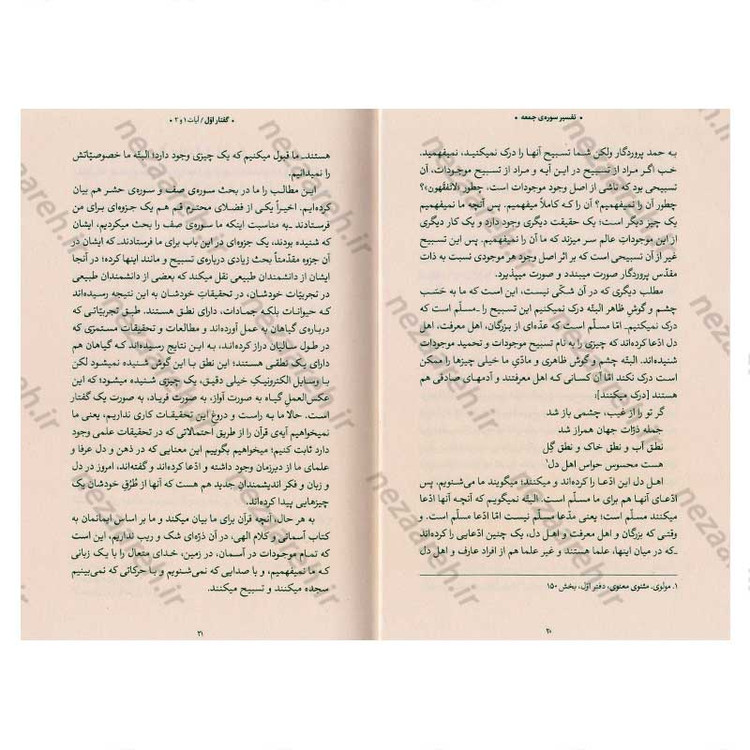 • تفسیر سوره‌ی جمعه •
به حمد پروردگار ولکن شما تسبیح آنها را درک نمیکنید، نمیفهمید.
خب اگر مراد از تسبیح در این آیه و مراد از تسبیح موجودات، آن
تسبیحی بود که ناشی از اصل وجود موجودات است، چطور «لاتفقهون»؟
چطور آن را نمیفهمیم؟ آن را که کاملاً میفهمیم. پس آنچه ما نمیفهمیم
یک چیز دیگر است؛ یک حقیقت دیگری وجود دارد و یک کار دیگری
از این موجودات عالم سر میزند که ما آن را نمیفهمیم. پس این تسبیح
غیر از آن تسبیحی است که بر اثر اصل وجود هر موجودی نسبت به ذات
مقدّس پروردگار صورت میبندد و صورت میپذیرد.
مطلب دیگری که در آن شکّی نیست، این است که ما به حَسَب
چشم و گوش ظاهر البتّه درک نمیکنیم این تسبیح را ـ مسلّم است که
درک نمیکنیم. امّا مسلّم است که عدّه‌ای از بزرگان، اهل معرفت، اهل
دل ادّعا کرده‌اند که چیزی را به نام تسبیح موجودات و تحمید موجودات
شنیده‌اند. البتّه چشم و گوش ظاهری و مادّیِ ما خیلی چیزها را ممکن
است درک نکند امّا آن کسانی کـه اهل معرفتند و آدمهای صادقی هم
هستند [درک میکنند]؛
گر تو را از غیب، چشمی باز شد
جمله ذرّات جهان همراز شد
نطق آب و نطق خاک و نطق گِل
هست محسوس حواس اهل دل۱
اهـل دل این ادّعا را کرده‌اند و میکنند؛ میگویند ما می‌شنویم. پس
ادّعـای آنها هم برای ما مسلّم است. البتّه نمیگویم که آنچـه آنها ادّعا
میکنند مسلّم است؛ یعنی مدّعای آنها مسلّم نیست امّا ادّعا مسلّم است. و
وقتـی که بزرگان و اهل معرفت و اهل دل، یک چنین ادّعایی را کرده‌اند
ـ که در میان اینها، علما هستند و غیر علما هم از افراد عارف و اهل دل
۱. مولوی. مثنوی معنوی، دفتر اوّل، بخش ۱۵۰
۲۰
• گفتار اوّل / آیات ۱ و ۲ •
هستند ـ ما قبول میکنیم که یک چیزی وجود دارد؛ البتّه ما خصوصیّاتش
را نمیدانیم.
این مطالب را ما در بحث سوره‌ی صف و سوره‌ی حشر هم بیان
کرده‌ایم. اخیراً یکی از فضلای محترم قم هـم یک جزوه‌ای برای من
فرستادند ـ به مناسبت اینکه ما سوره‌ی صف را بحث میکردیم، ایشان
که شنیده بودند، یک جزوه‌ای در این باب برای ما فرستادند ـ که ایشان در
آن جزوه مقدّمتاً بحث زیادی درباره‌ی تسبیح و مانند اینها کرده؛ در آنجا
ایشان از دانشمندان طبیعی نقل میکند که بعضی از دانشمندان طبیعی
در تجربیّات خودشان، در تحقیقاتِ خودشان به این نتیجه رسیده‌اند
کـه حیوانات بلکـه جمادات، دارای نطق هستند. طبق تجربیّاتی که
درباره‌ی گیاهان به عمل آورده‌اند و مطالعات و تحقیقات مستمرّی که
در طول سـالیان دراز کرده‌انـد، بـه این نتایج رسیده‌اند کـه گیاهان هم
دارای یک نطقـی هستند؛ این نطق با این گوش شنیده نمیشود لکن
با وسـایل الکترونیکِ خیلی دقیق، یک چیزی شنیده میشود؛ که این
عکس‌العملِ گیاه به صورت آواز، به صورت فریاد، به صورت یک گفتار
است. حالا ما به راست و دروغ این تحقیقات کاری نداریم، یعنی ما
نمیخواهیم آیه‌ی قرآن را از طریق احتمالاتی که در تحقیقات علمی وجود
دارد ثابت کنیم؛ میخواهیم بگوییم این معنایی که در ذهن و دل عرفا و
علمای ما از دیرزمان وجود داشته و ادّعا کرده‌اند و گفته‌اند، امروز در دل
و زبان و فکر اندیشمندانِ جدید هم هست که آنها از طُرُقِ خودشان یک
چیزهایی پیدا کرده‌اند.
به هر حال، آنچه قرآن برای ما بیان میکند و ما بر اساس ایمانمان به
کتاب آسمانی و کلام الهی، در آن ذرّه‌ای شک و ریب نداریم، این است
که تمام موجـودات در آسمان، در زمین، خدای متعال را با یک زبانی
کـه ما نمیفهمیم، و با صدایی که نمی‌شنویم و با حرکاتی که نمی‌بینیم
سجده میکنند و تسبیح میکنند.
۲۱
nezaareh.ir